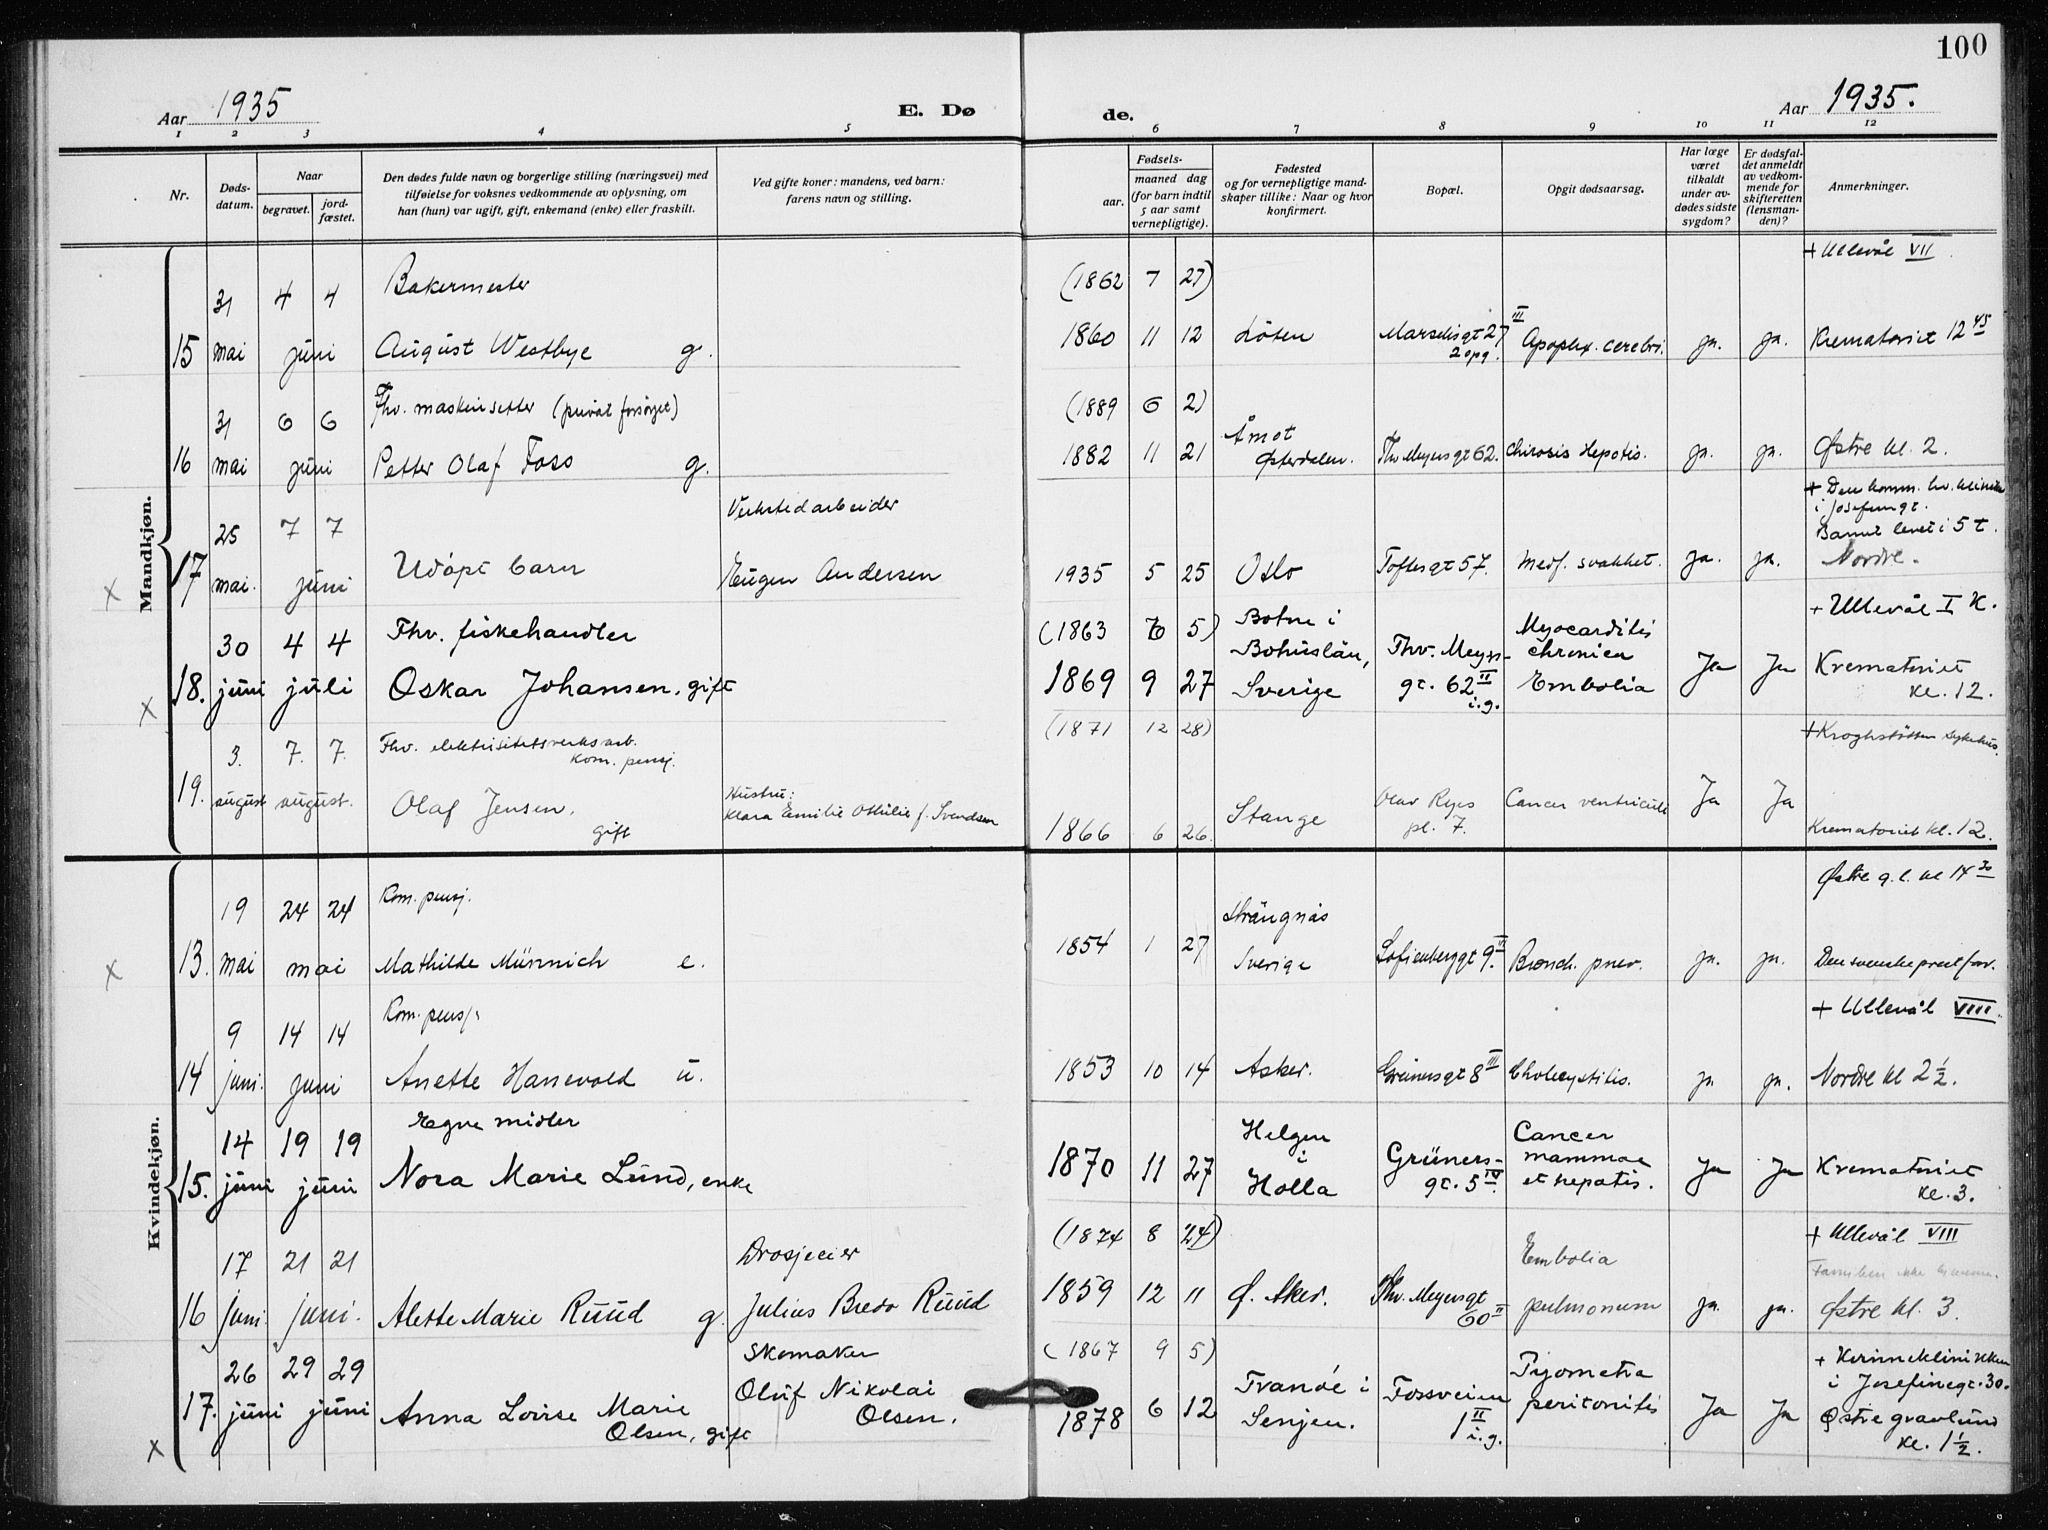 100
Aar 1935 E. Dø de. Aar 1935.
1 2 3 4 5 6 7 8 9 10 11 12
Nr.
Døds-
datum.
Naar
begravet.
jord-
fæstet.
Den dødes fulde navn og borgerlige stilling (næringsvei) med
tilføielse for voksnes vedkommende av oplysning, om
han (hun) var ugift, gift, enkemand (enke) eller fraskilt.
Ved gifte koner: mandens, ved barn:
farens navn og stilling.
Fødsels-
aar.
maaned dag
(for barn indtil
5 aar samt
vernepligtige).
Fødested
og for vernepligtige mand-
skaper tillike: Naar og hvor
konfirmert.
Bopæl.
Opgit dødsaarsag.
Har læge
været
tilkaldt
under av-
dødes sidste
sygdom?
Er dødsfal-
det anmeldt
av vedkom-
mende for
skifteretten
(lensman-
den)?
Anmerkninger.
Mandkjøn.
+ Ullevål VII
31 4 4 Bakermester (1862 7 27)
15 mai juni August Westbye g. 1860 11 12 Løten Marselisgt 27 III 2 opg. Apoplex. cerebri. ja. ja. Krematoriet 12 45
31 6 6 Fhv. maskinsetter (privat forsørget) (1889 6 2)
16 mai juni Petter Olaf Foss g. 1882 11 21 Åmot Østerdalen. Thv Meyersgt 62. Chirosis Hepatis. ja. ja. Østre kl. 2.
+ Den komm. kv. klinikk
i Josefinegt.
Barnet levet i 5 t.
25 7 7 Verkstedarbeider
17 mai. juni Udøpt barn Eugen Andersen 1935 5 25 Oslo Toftesgt 57. Medf. svakhet. ja. ja. Nordre.
+ Ullevål I K.
30 4 4 Fhv. fiskehandler (1863 5) Botne i Myocarditis
Bohuslän, Thv. Meyers- chronica
18. juni juli Oskar Johansen, gift 1869 9 27 Sverige gt. 62 II i.g. Embolia Ja Ja Krematoriet
kl. 12.
(1871 12 28) + Kroghstøtten sykehus.
3. 7. 7. Fhv. elektrisitetsverksarb.
kom. pensj.
19. august august. Olaf Jensen. gift Hustru:
Klara Emilie Othilie f. Svendsen 1866 6 26. Stange Olav Ryes
pl. 7. Cancer ventriculi Ja Ja Krematoriet kl. 12.
Kvindekjøn.
Østre g.l. kl 14 30
19 24 24 Kom. pensj.
13. mai mai Mathilde Münnich e. 1854 1 27 Strängnäs
Sverige Sofienberggt 9. Bronch. pnev. ja. ja. Den svenske prest forr.
+ Ullevål VIII.
9 14 14 Kom. pensj.
14 juni. juni Anette Hanevold u. 1853 10 14 Asker. Grünersgt 8 III Cholecystitis. ja ja. Nordre kl 2 ½.
14 19 19 Egne midler Helgen Cancer
15. juni juni Nora Marie Lund, enke 1870 11 27 i
Holla Grüners-
gt. 5 IV. mammae
et hepatis. Ja Ja Krematoriet
kl. 3.
(1874 8 24) + Ullevål VIII
17 21 21 Drosjeeier Embolia
16 juni. juni. Alette Marie Ruud g. Julius Bredo Ruud 1859 12 11 Ø. Aker. Thv. Meyersgt
60 II pulmonum ja. ja. Østre kl. 3.
(1867 9 5)
26 29 29 Skomaker Pyometra + Kvinneklinikken
i Josefinegt. 30.
17. juni juni Anna Lovise Marie
Olsen, gift Oluf Nikolai
Olsen. 1878 6 12 Tranöe i
Senjen. Fossveien
1 II
i.g. peritonitis Ja Ja Østre gravlund
kl. 1 ½.